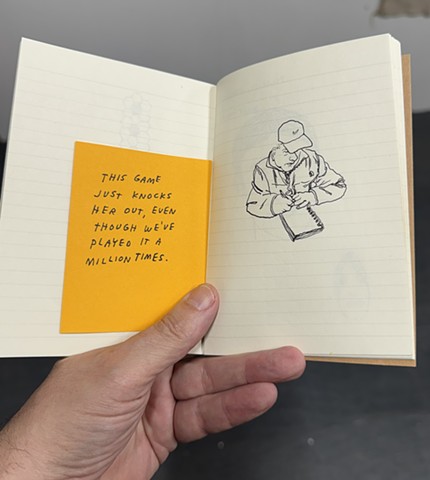 THIS GAME
JUST KNOCKS
HER OUT, EVEN
THOUGH WE'VE
PLAYED IT A
MILLION TIMES.